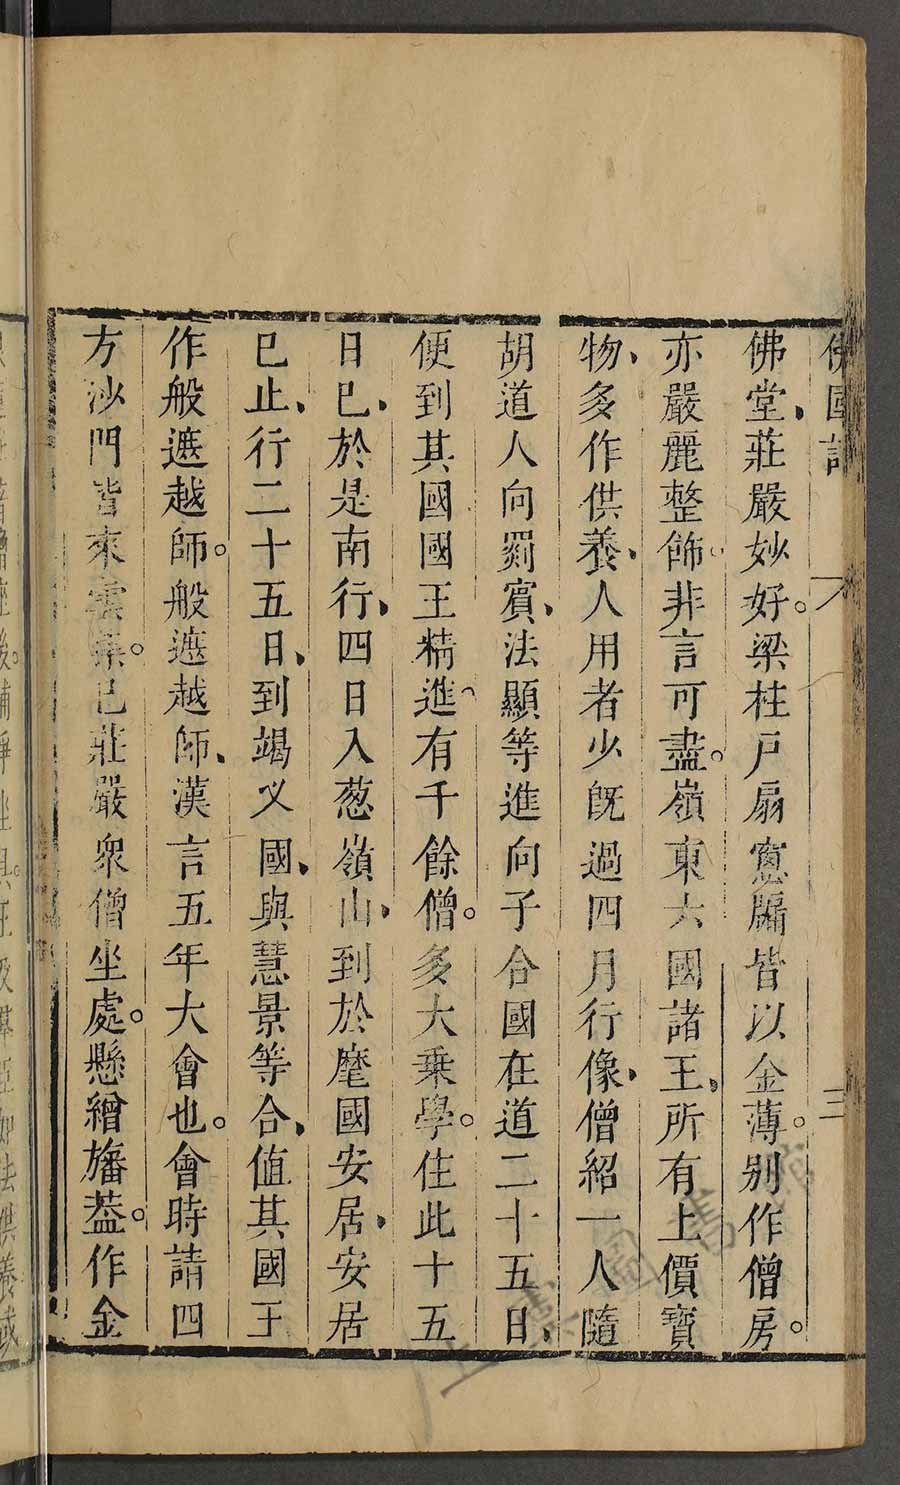 佛國記 三
佛堂、莊嚴妙好。梁柱戸扇窻牖皆以金薄。别作僧房。
亦嚴麗整飾。非言可盡。嶺東六國諸王、所有上價寶
物、多作供養、人用者少既過四月行像、僧紹一人隨
胡道人向罽賓、法顯等進向子合國在道二十五日、
便到其國國王精進、有千餘僧。多大乗學。住此十五
日巳、於是南行、四日入葱嶺山、到於麾國安居、安居
已止、行二十五日、到竭义國、與慧景等合、值其國王
作般遮越師。般遮越師、漢言五年大會也。會時請四
方沙門皆來雲集。已莊嚴衆僧坐處。懸繒旛葢。作金